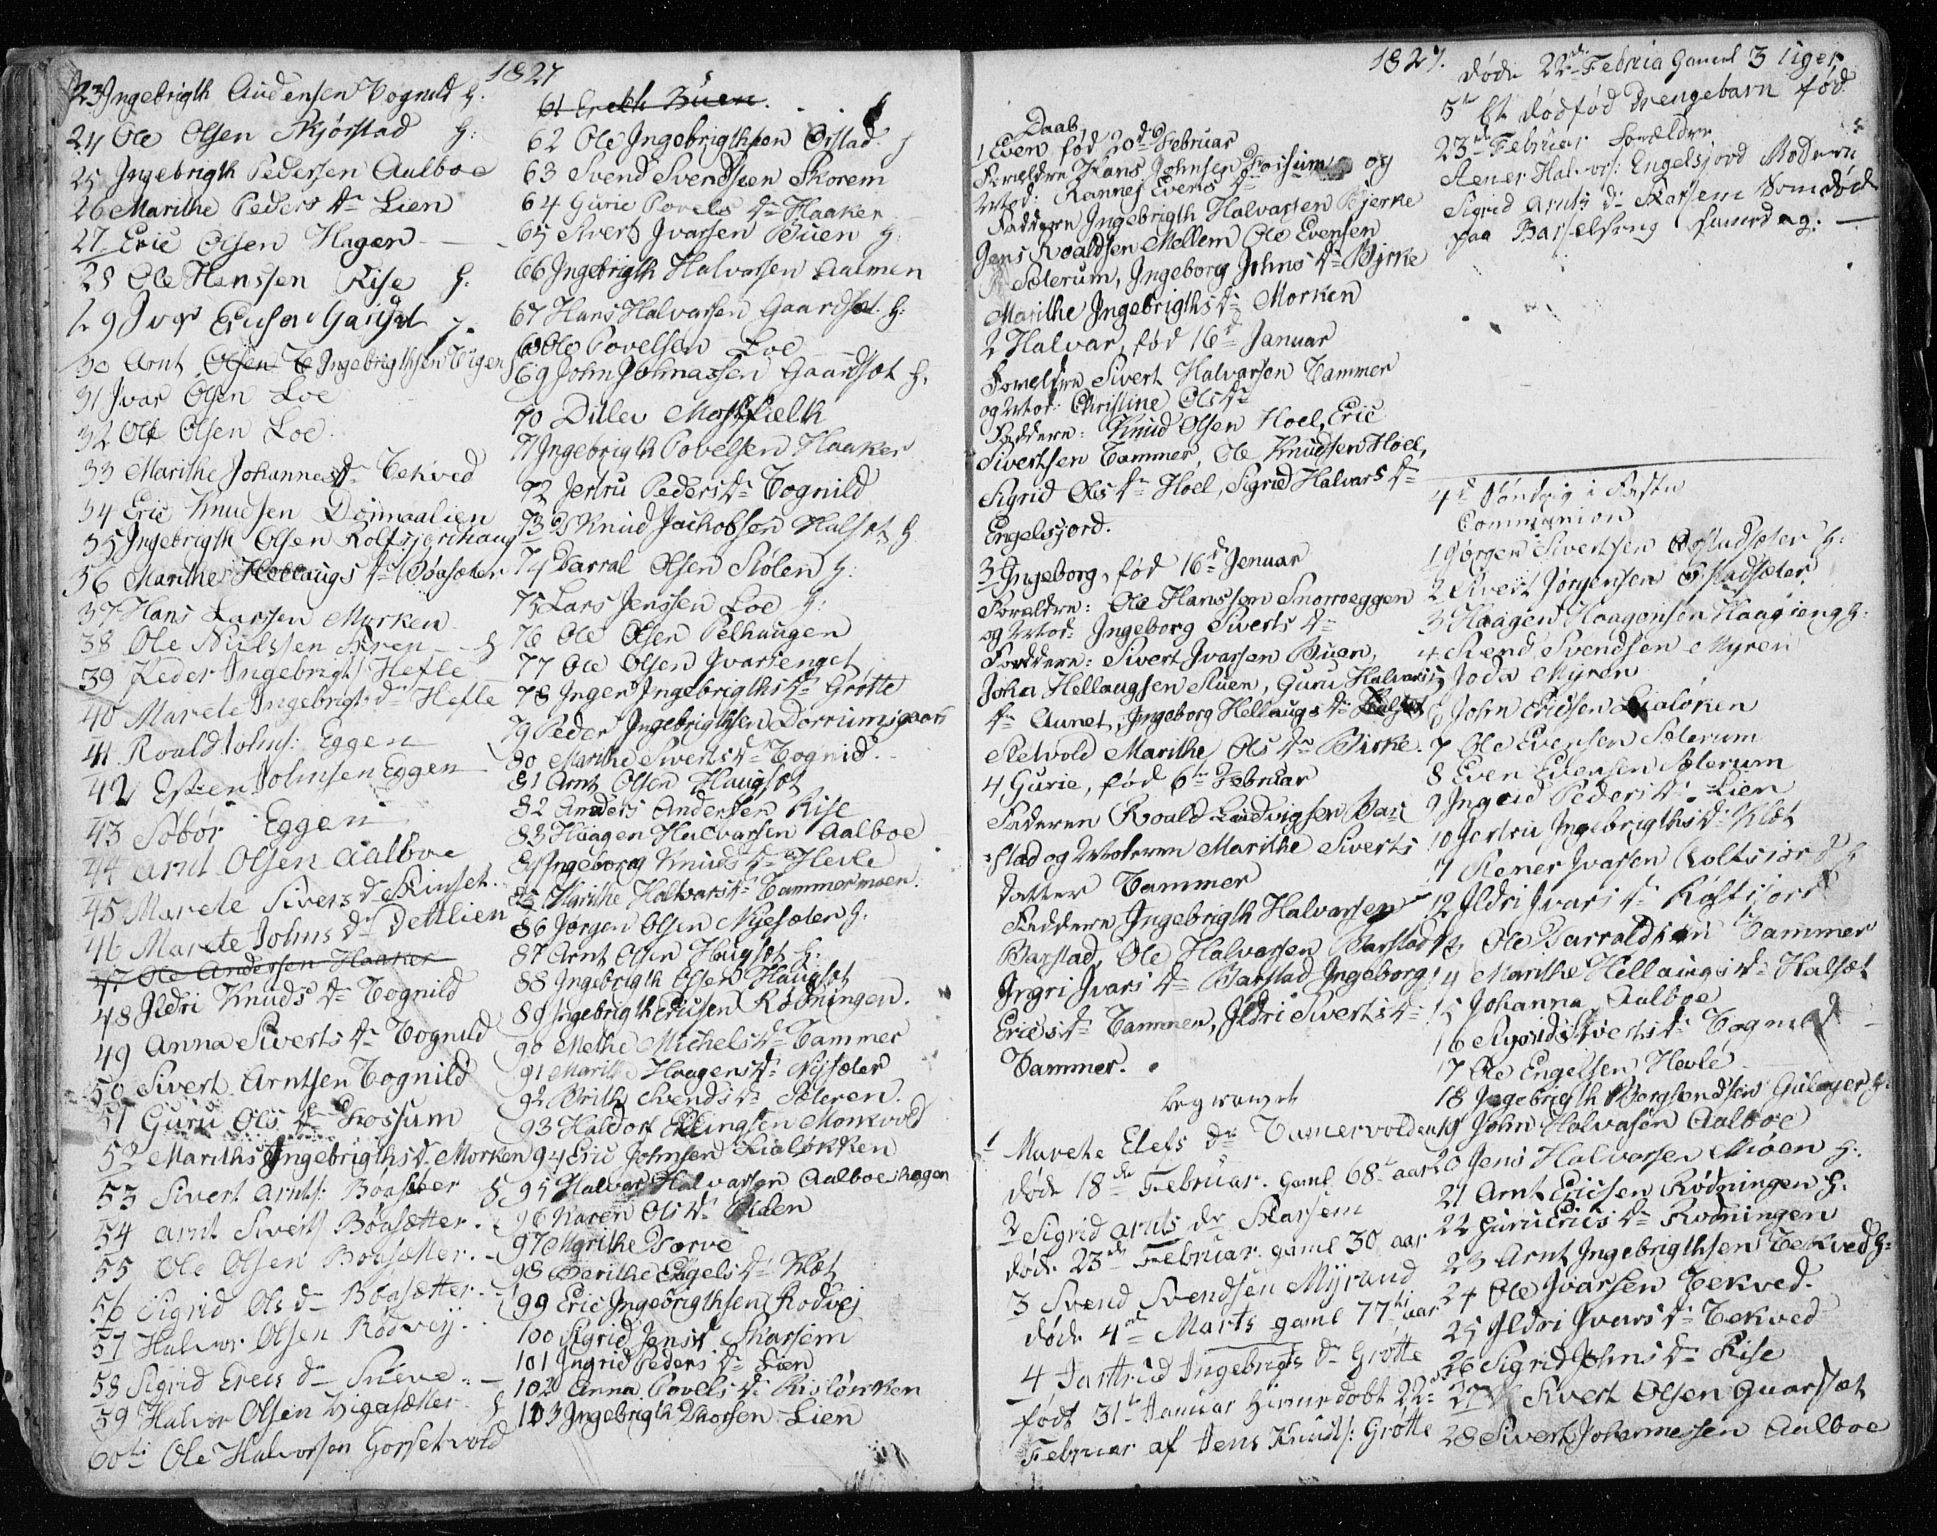 1827
23 Ingebrigth Audensen Tognild H.
24 Ole Olsen Skjørstad H:
25 Ingebrigth Pedersen Aalboe
26 Marithe Peders Dr Lien
27 Eric Olsen Hagen
28 Ole Hanssen Rise H:
29 Ivar
30 Arnt Olsen Te Ingebrigthsen Vigen
31 Ivar Olsen Loe
32 Ole Olsen Loe
33 Marithe Johannes Dr Tekved
34 Eric Knudsen Donnaalien
35 Ingebrigth Olsen Rolfsjordhaug
36 Marithe Hellaugs Dr Bøasæter
37 Hans Larssen Morken
38 Ole Nielssen
39 Peder Ingebrigts Hefle
40 Marete Ingebrigts dr Hefle
41 Roald Johns: Eggen
42 Esten Johnsen Eggen
43 Eggen
44 Arnt Olsen Aalboe
45 Marete Sivers Dr Skinset
46 Marete Johns Dr Detlien
47 Ole Andersen Haaker
48 Ildri Knuds Dr Tognild
49 Anna Siverts Dr Tognild
50 Sivert Arntsen Tognild
51 Guru Ols Dr Fossum
52 Marithe Ingebrigths D. Morken
53 Sivert Arnts: Boasæter
54 Arnt Siverts Bøasætter
55 Ole Olsen Boasætter
56 Sigrid Ols d Bøasætter
57 Halvor Olsen Rødvey
58 Sigrid Erics d
59 Halvor Olsen Vigasætter
60 Ole Halvorsen Gorsetvold
61 Buen
62 Ole Ingebrigthsen Orstad
63 Svend Svendsen Skorem
64 Gurie Povels Dr Haaker
65 Sivert Ivarsen Buen H
66 Ingebrigth Halvorsen Aalmen
67 Hans Halvarsen Gaardsæt H:
68 Ole Povelsen Loe
69 John Johnassen Gaardsæt H:
70 Ditlev
71 Ingebrigth Povelsen Haaker
72 Jertru Peders Dr Tognild
73 Knud Jachobsen Halset H
74 Barral Olsen Stølen H:
75 Lars Jenssen Loe H:
76 Ole Olsen Pelhaugen
77 Ole Olsen Ivarsenget
78 Inger Ingebrigths Dr Grøtte
79 Peder Ingebrigthsen Dorrumsgaard
80 Marithe Siverts Dr Tognild
81 Arnt Olsen Haugset
82 Anders Andersen Rise
83 Haagen Halvarsen Aalboe
84 Ingeborg Knuds Dr Hevle
85 Marithe Halvars Dr Tammermoen
86 Jørgen Olsen Nysæter H.
87 Arnt Olsen Haugset H.
88 Ingebrigth Olsen Haugset
89 Ingebrigth Ericsen Rødningen
90 Methe Michels Dr Tammer
91 Marith Haagens Dr Nysæter
92 Brith Svends Dr Sæteren
93 Haldor Ellingsen Monkvold
94 Eric Johnsen Lialøkken
95 Halvar Halvarsen Aalboeshagen
96 Karen Ols Dr
97 Marithe
98 Berithe Engels Dr Klet
99 Eric Ingebrigthsen Rodvej
100 Sigrid Jens Dr Skarsem
101 Ingrid Peders Dr Lien
102 Anna Povels Dr Risløkken
103 Ingebrigth Thorsen Lien
1827.
Daab
1 Even, fød 20de Februar
Forældre Hans Johnsen Fossum og
Mod: Rannei Evens Dr
Faddere Ingebrigth Halvarsen Bjerke
Jens Roaldsen Mellem Ole Evensen
Sæterum, Ingeborg Johns Dr Bjerke
Marithe Ingebrigths Dr Morken
2 Halvar, fød 16de Januar
Forældre Sivert Halvarsen Tammer
og Mod: Christine Ols Dr
Faddere: Knud Olsen Hoel, Eric
Sivertsen Tammer, Ole Knudsen Hoel,
Sigrid Ols Dr Hoel, Sigrid Halvars Dr
Engelsjord.
3 Ingeborg, fød 16de Januar
Forældre: Ole Hanssen Snorroeggen
og Mod: Ingeborg Siverts Dr
Faddere: Sivert Ivarsen Buen,
John Hellaugsen Stuen, Guru Halvars
Dr Aunet, Ingeborg Hellaugs Dr
Marithe Ols Dr Birke.
4 Gurie, fød 6te Februar
Faderen Roald Ludvigsen Bar
stad og Moderen Marithe Siverts
datter Tammer
Faddere Ingebrigth Halvarsen
Barstad, Ole Halvarsen Barstad
Ingri Ivars Dr Barstad Ingeborg
Erics Dr Tammer, Ildri Siverts Dr
Tammer.
begravet
1 Marete Elefs Dr Tamervolden
døde 18de Februar. gaml 68 aar
2 Sigrid Arnts dr Skarsem
døde 23de Februar gaml 30 aar
3 Svend Svendsen Myrand
døde 4de Marts gaml 77 aar
4 Ingebrigts dr Grøtte
født 31te Januar hjemedøbt 22de
Februar af Jens Knuds: Grøtte
døde 22de Februa Gamel 3 Uger
5te Et dødfød Drengebarn fød
23de Februar Forældre
Stener Halvors: Engelsjord Moderen
Sigrid Arnts Dr Skarsem som døde
paa Barselseng samme dag.
4de Søndag i Faste
Communion
1 Jørgen Sivertsen Orstadsæter H:
2 Sivert Jørgensen Orstadsæter
3 Haagen Haagensen Haagieng H:
4 Svend Svendsen Myren
5 Joda Myren
6 John Ericsen Lialøken
7 Ole Evensen Sæterum
8 Even Evensen Sæterum
9 Ingrid Peders Dr Lien
10 Jertru Ingebrigths Dr Klet
11 Stener Ivarsen
12 Ildri Ivars Dr
13 Ole Barraldsen Tammer
14 Marithe Hellaugs Dr Halset
15 Johanna Aalboe
16 Sigrid Siverts Dr Tognild
17 Ole Engelsen Hevle
18 Ingebrigth Bergsvendsen
19 John Halvasen Aalboe
20 Jens Halvarsen Møen H:
21 Arnt Ericsen Rødningen H:
22 Guru Erics Dr Rødningen
23 Arnt Ingebrigthsen Tekved H:
24 Ole Ivarsen Tekved
25 Ildri Ivars Dr Tekved
26 Sigrid Johns Dr Rise
27 Sivert Olsen Guarsæt
28 Sivert Johannessen Aalboe